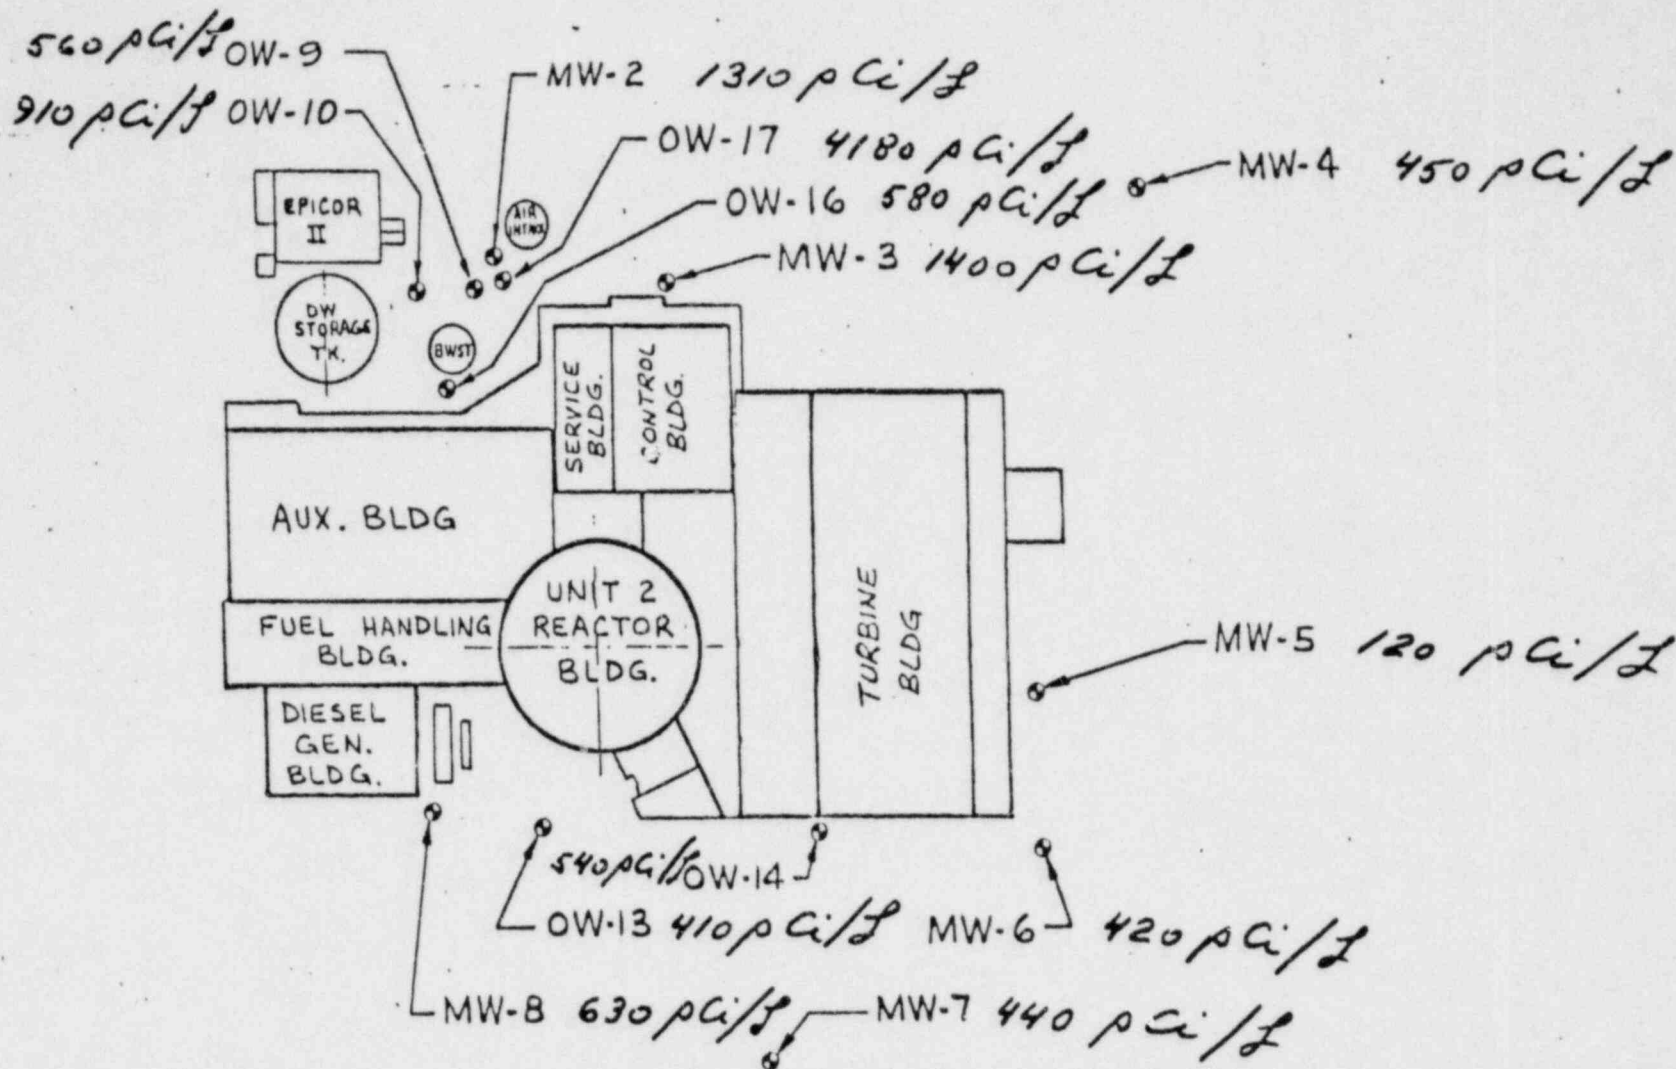 560 pCi/l OW-9
MW-2 1310 pCi/l
910 pCi/l OW-10
OW-17 4180 pCi/l
MW-4 450 pCi/l
OW-16 580 pCi/l
MW-3 1400 pCi/l
EPICOR
II
AIR
INTAKE
DW
STORAGE
TK.
BWST
SERVICE
BLDG.
CONTROL
BLDG.
AUX. BLDG
UNIT 2
REACTOR
BLDG.
FUEL HANDLING
BLDG.
TURBINE
BLDG
MW-5 120 pCi/l
DIESEL
GEN.
BLDG.
540 pCi/l OW-14
OW-13 410 pCi/l
MW-6 420 pCi/l
MW-8 630 pCi/l
MW-7 440 pCi/l